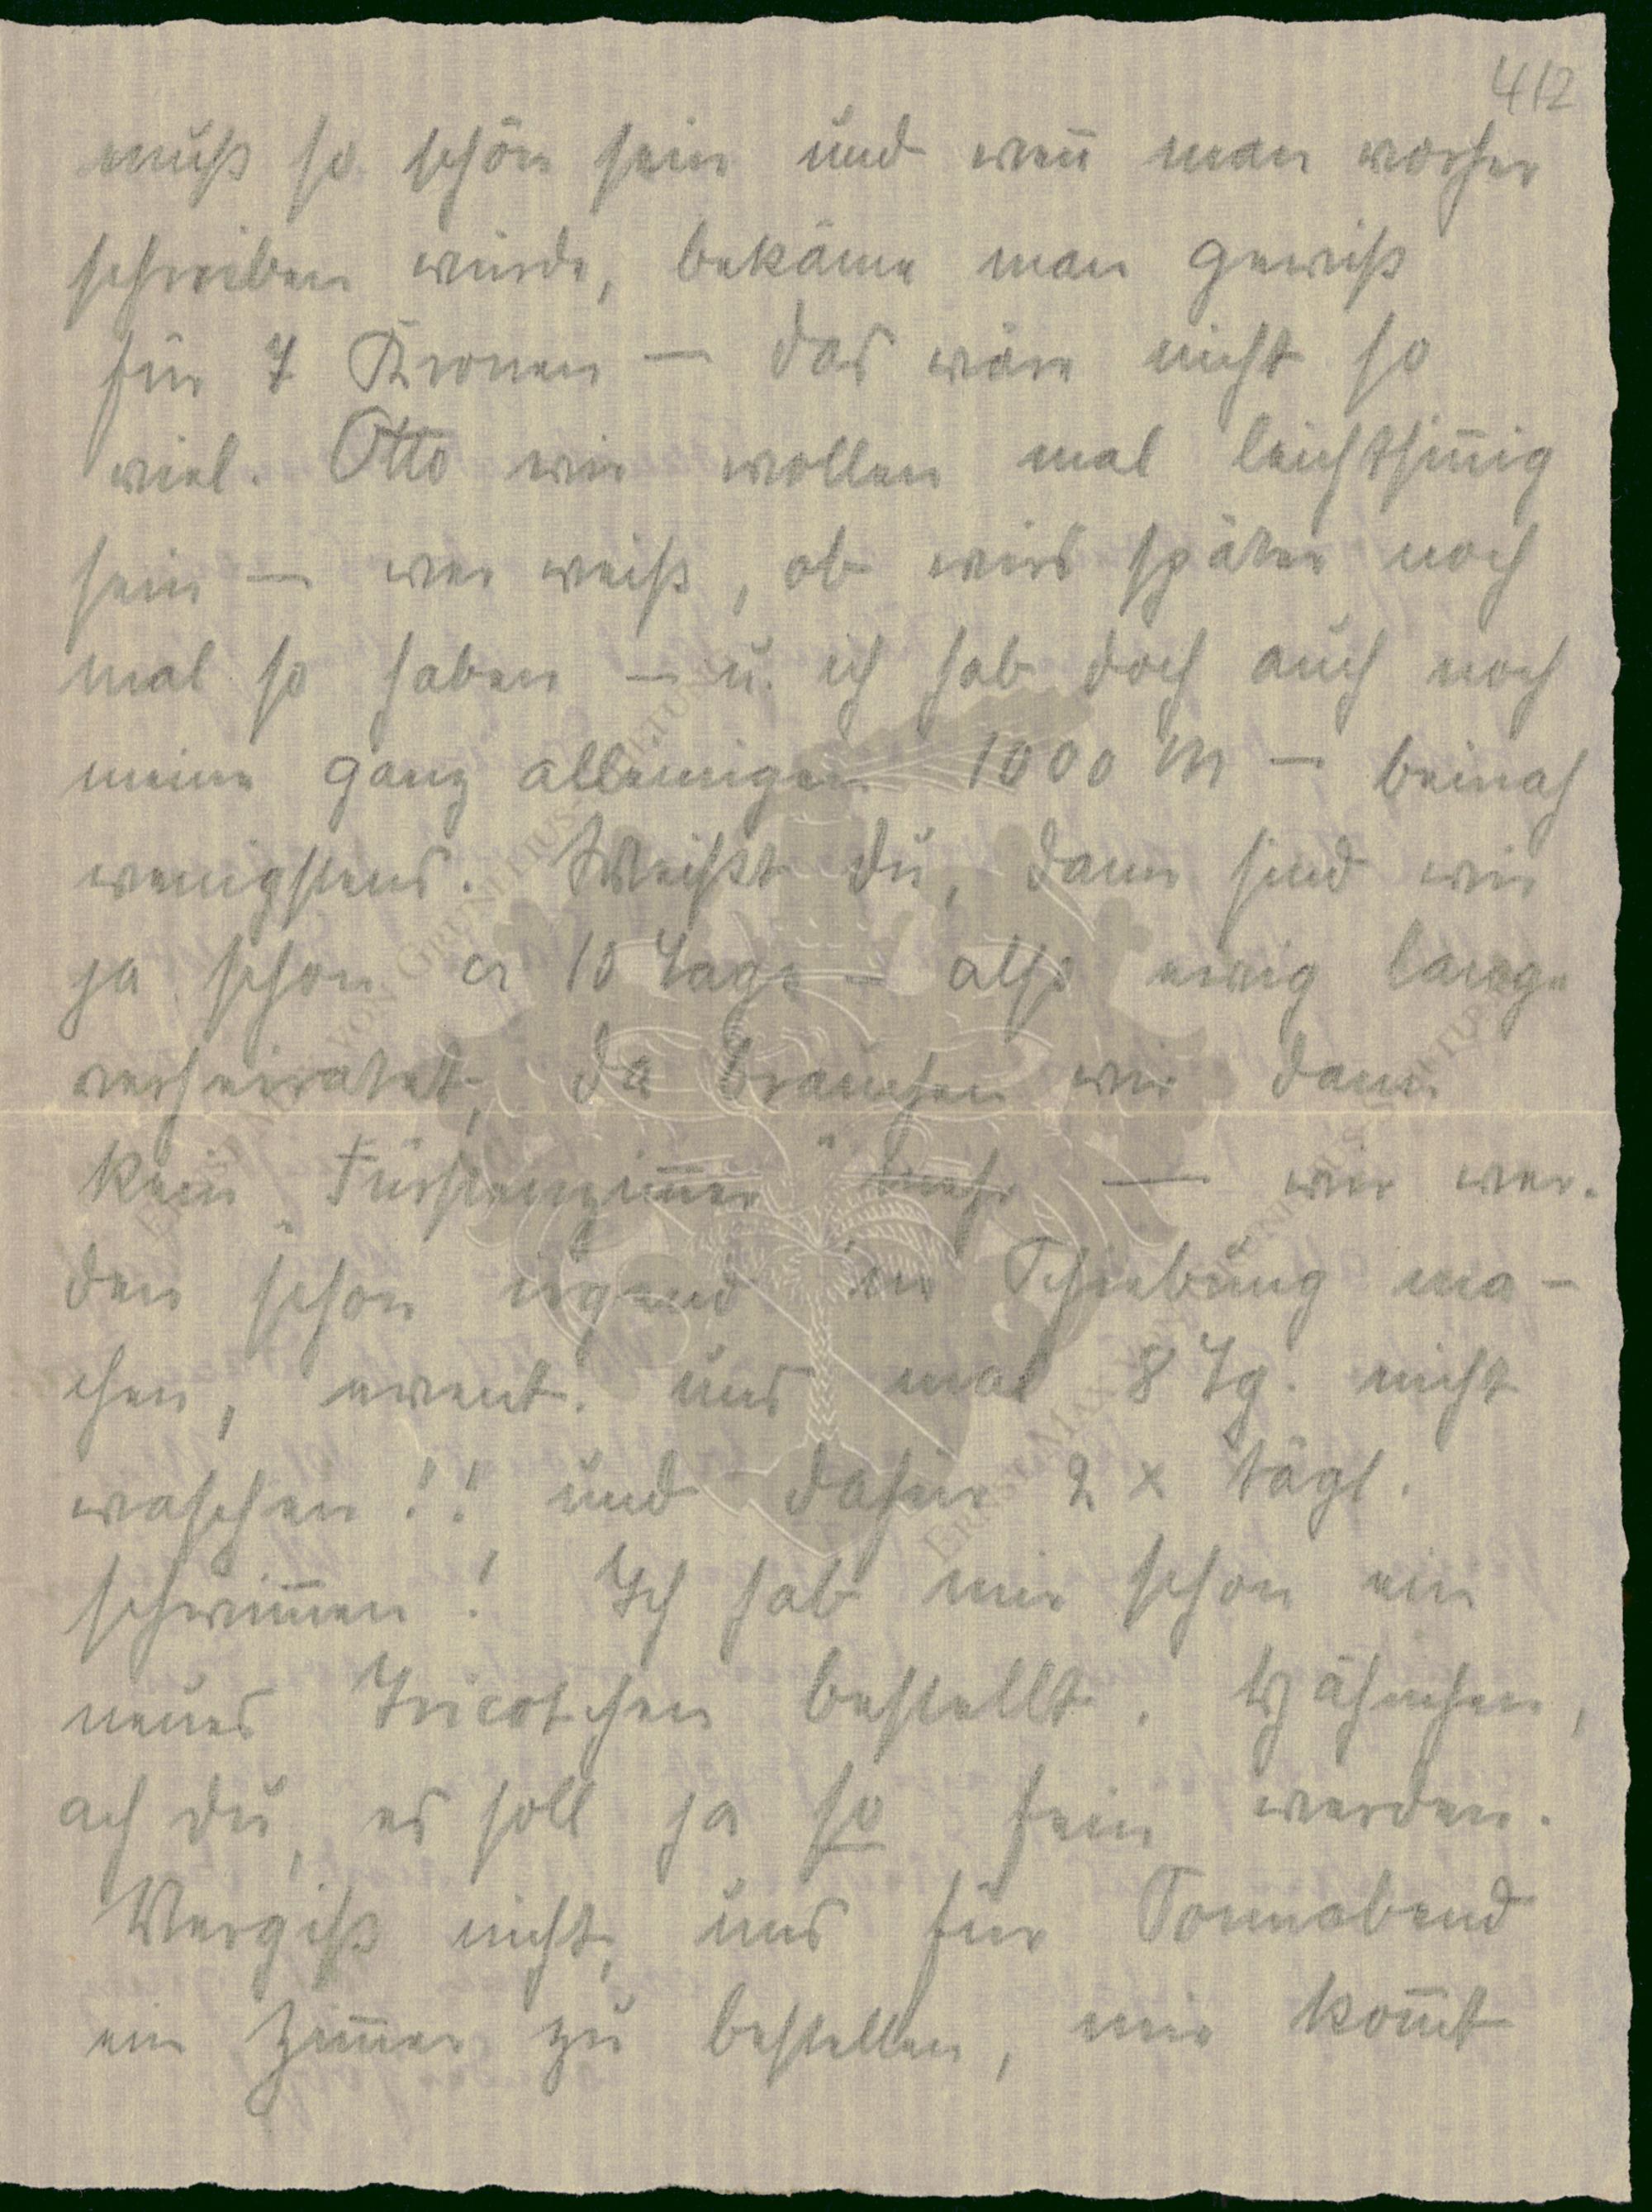 412
muß so schön sein und wen̄ man vorher
schreiben würde, bekäme man gewiß
für 7 Kronen — das wäre nicht so
viel. Otto wir wollen mal leichtsin̄ig
sein — wer weiß, ob wirs später noch
mal so haben — u. ich hab doch auch noch
meine ganz alleinigen 1000 M — beinah
wenigstens. Weißt du, dann sind wir
ja schon ca 10 Tage — also ewig lange
verheiratet, da brauchen wir dann
kein „Fürstenzim̄er" mehr — wir wer-
den schon irgend 'ne Schiebung ma-
chen, event. uns mal 8 Tg. nicht
waschen!! und dafür 2 x tägl.
schwim̄en! Ich hab mir schon ein
neues Tricotchen bestellt.
ach du, es soll ja so fein werden.
Vergiß nicht, uns für Sonnabend
ein Zim̄er zu bestellen, mir kom̄t
ERNST MAX VON GRUNELIUS-STIFTUNG